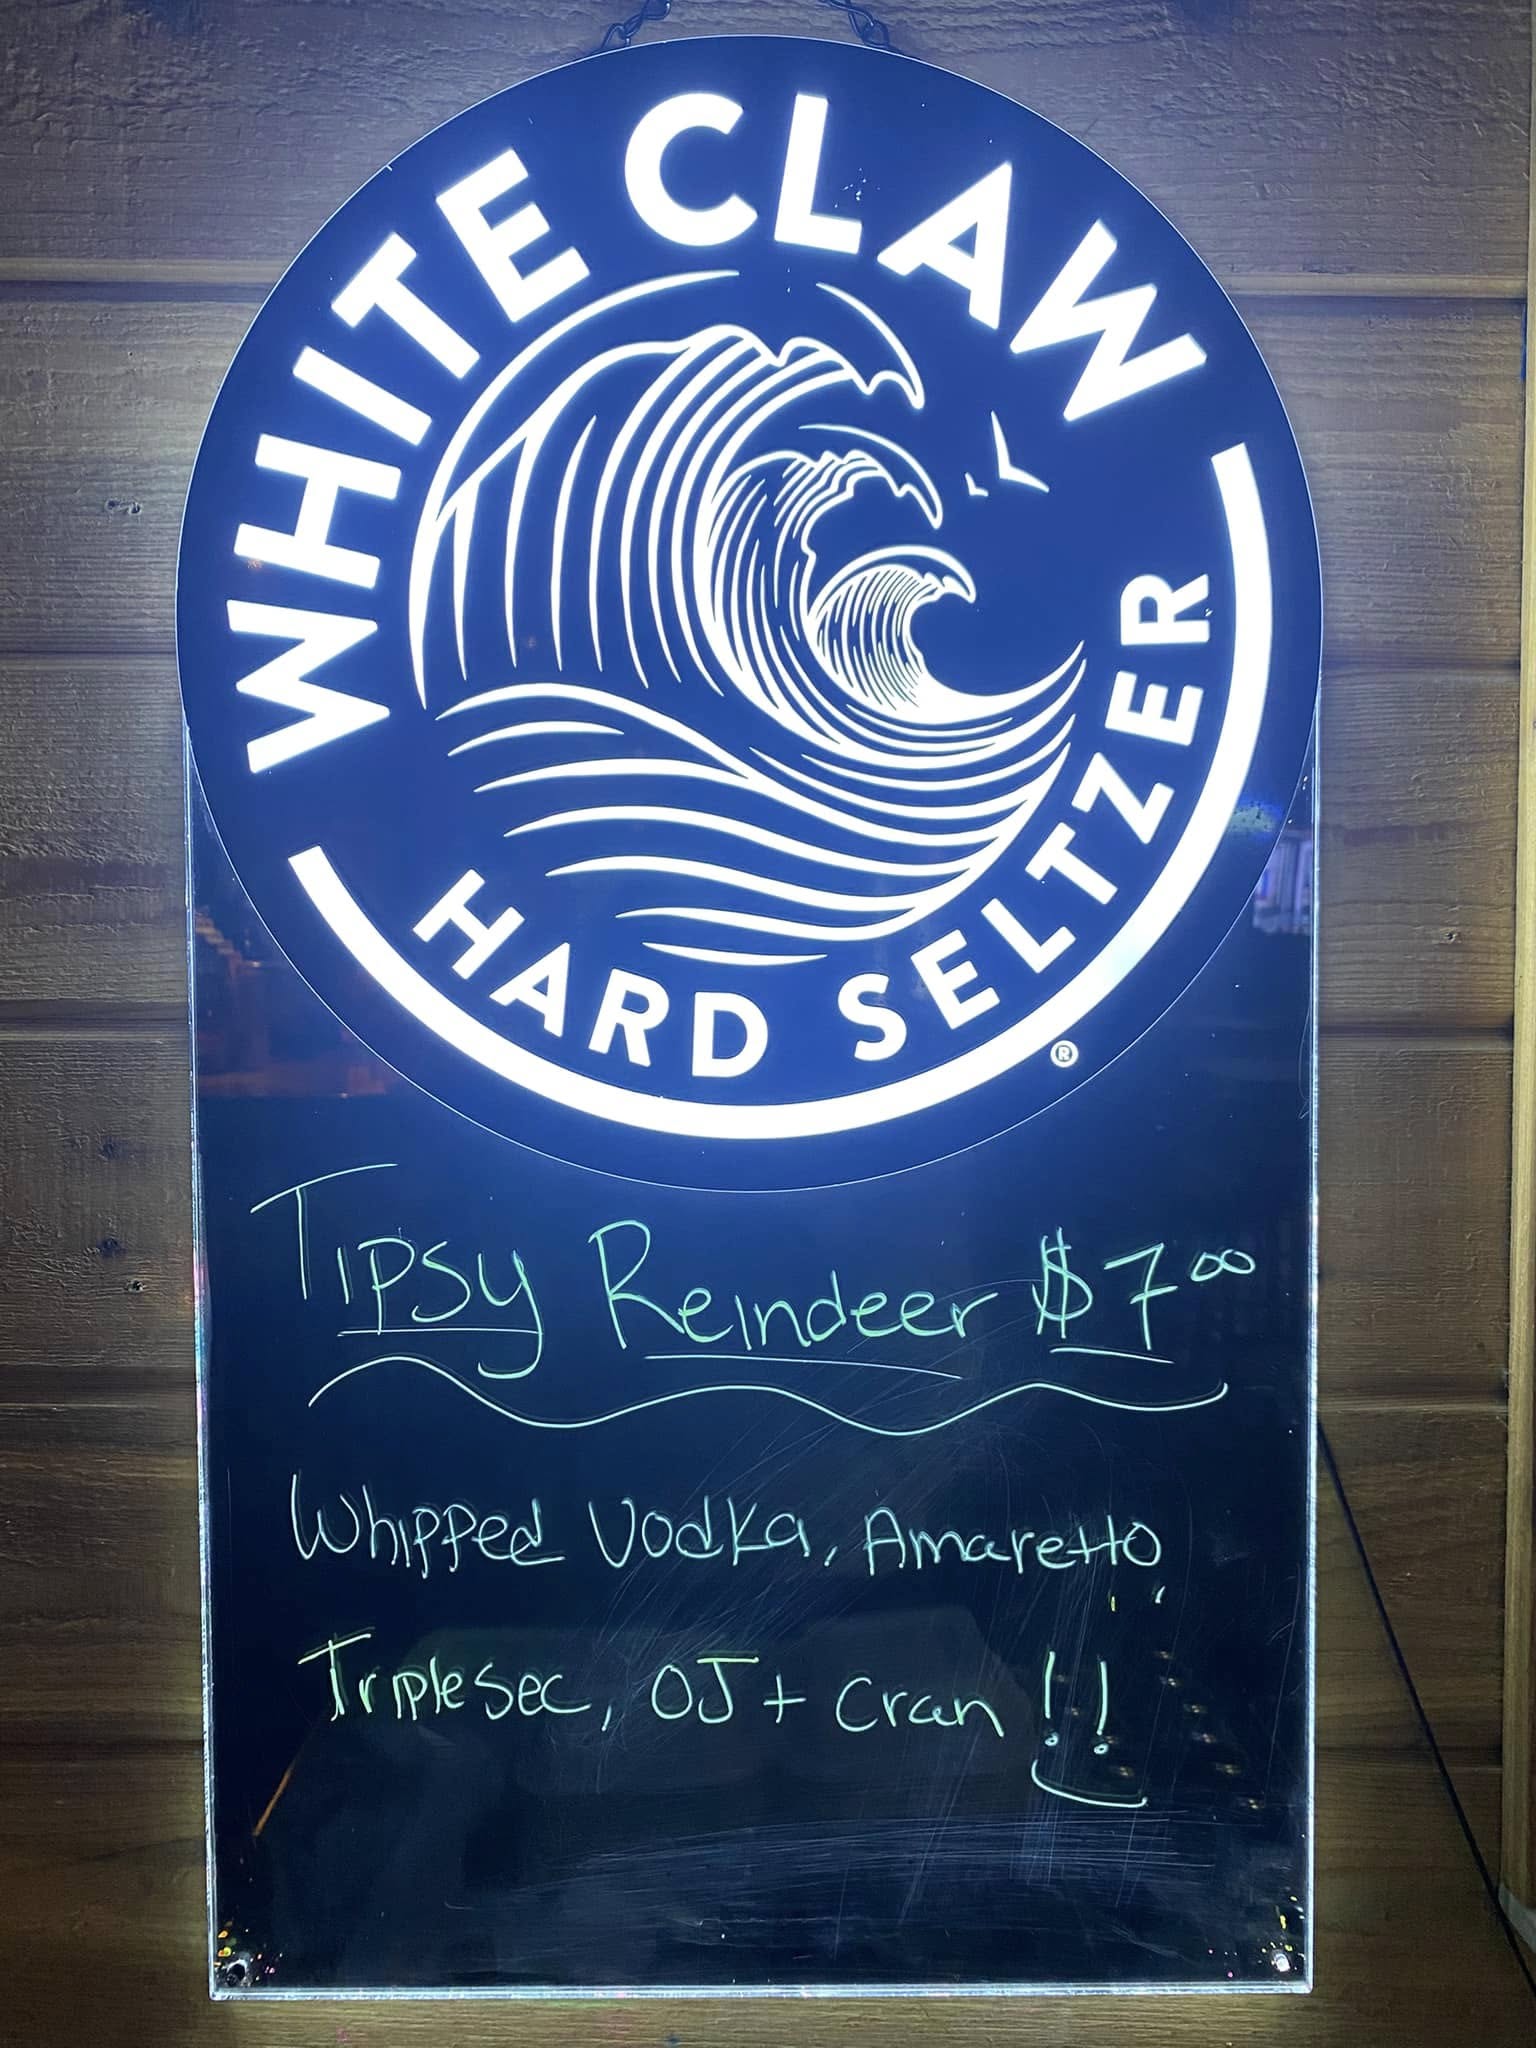 WHITE CLAW
HARD SELTZER
®
Tipsy Reindeer $7.00
Whipped Vodka, Amaretto,
Triple Sec, OJ + Cran !!